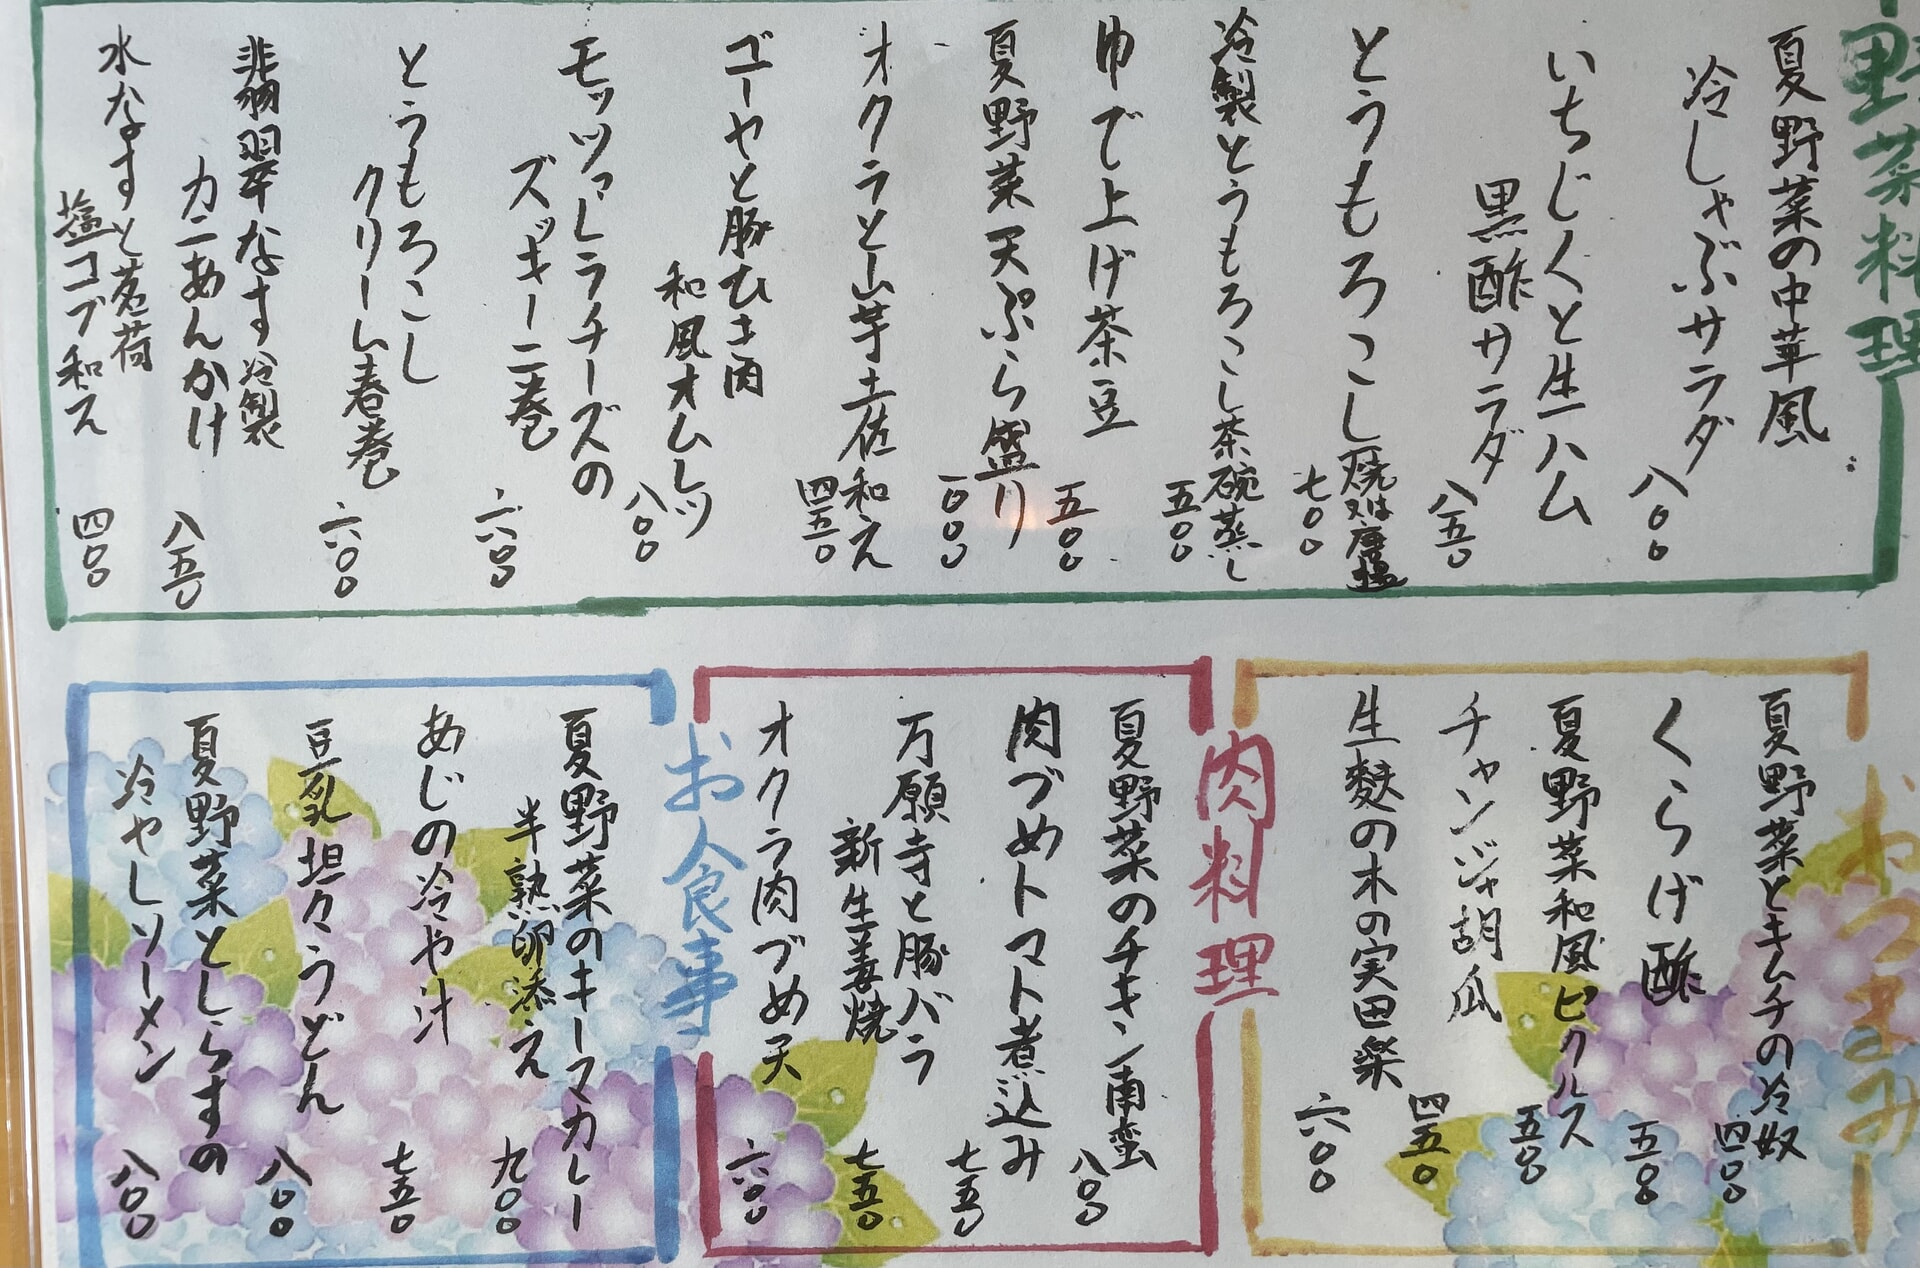 野菜料理
夏野菜の中華風
冷しゃぶサラダ
八〇〇
いちじくと生ハム
黒酢サラダ
八五〇
とうもろこし焼又は唐揚
七〇〇
冷製とうもろこし茶碗蒸し
五〇〇
ゆで上げ茶豆
五〇〇
夏野菜天ぷら盛り
一〇〇〇
オクラと山芋土佐和え
四五〇
ゴーヤと豚ひき肉
和風オムレツ
八〇〇
モッツァレラチーズの
ズッキーニ巻
六〇〇
とうもろこし
クリーム春巻
六〇〇
翡翠なす冷製
カニあんかけ
八五〇
水なすと茗荷
塩コブ和え
四〇〇
おつまみ
夏野菜とキムチの冷奴
四〇〇
くらげ酢
五〇〇
夏野菜和風ピクルス
五〇〇
チャンジャ胡瓜
四五〇
生麩の木の実田楽
六〇〇
肉料理
夏野菜のチキン南蛮
八〇〇
肉づめトマト煮込み
七五〇
万願寺と豚バラ
新生姜焼
七五〇
オクラ肉づめ天
六〇〇
お食事
夏野菜のキーマカレー
半熟卵添え
九〇〇
あじの冷や汁
七五〇
豆乳坦々うどん
八〇〇
夏野菜としらすの
冷やしソーメン
八〇〇